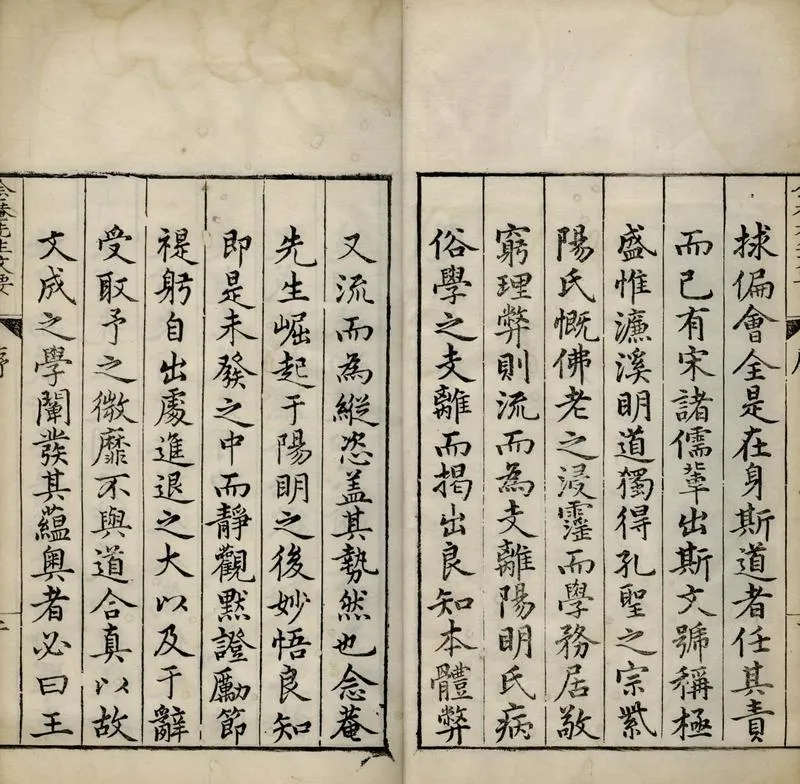 捄偏會全是在身斯道者任其責
而已有宋諸儒輩出斯文號稱極
盛惟濂溪明道獨得孔聖之宗紫
陽氏慨佛老之浸霪而學務居敬
窮理弊則流而為支離陽明氏病
俗學之支離而揭出良知本體弊
又流而為縱恣盖其勢然也念菴
先生崛起于陽明之後妙悟良知
即是未發之中而靜觀默證勵節
禔躬自出處進退之大以及于辭
受取予之微靡不與道合真以故
文成之學闡發其蘊奧者必曰王
念菴先生文要 序